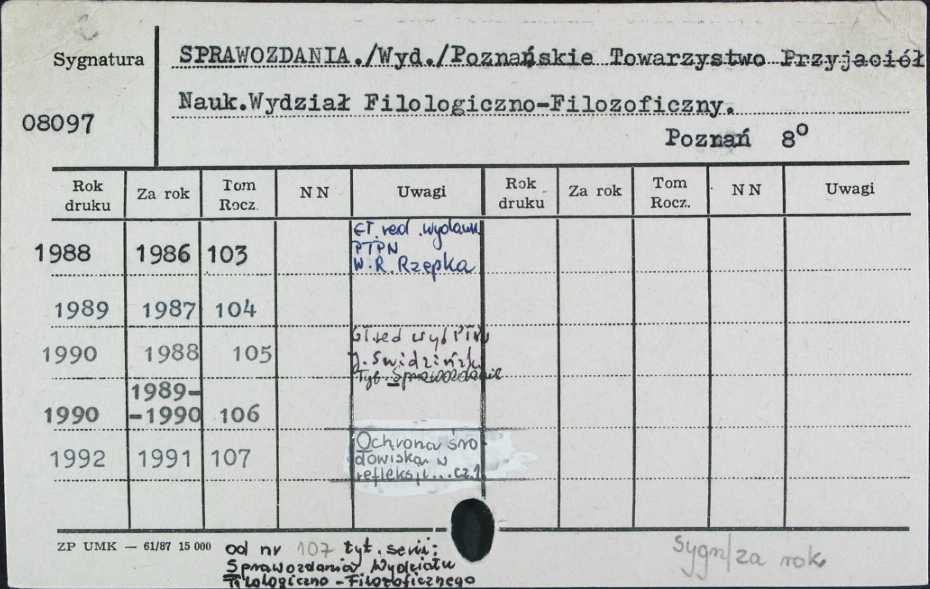 Sygnatura
08097
SPRAWOZDANIA./Wyd./Poznańskie Towarzystwo Przyjaciół
Nauk.Wydział Filologiczno-Filozoficzny.
Poznań 8°
Rok druku Za rok Tom Rocz. NN Uwagi Rok druku Za rok Tom Rocz. NN Uwagi
1988 1986 103 Gł. red. wydawn
PTPN
W.R. Rzepka
1989 1987 104
1990 1988 105 Gł. red wyd PTPN
J. Świdzińsk.
Tyt. Sprawozdanie
1990 1989-
-1990 106
1992 1991 107 Ochrona śro
dowiska w
refleksji... cz.1
ZP UMK — 61/87 15 000
od nr 107 tyt. serii:
Sprawozdania Wydziału
Filologiczno-Filozoficznego
Sygn/za rok